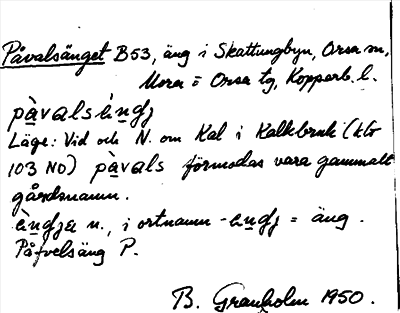 Påvalsänget B53, äng i Skattungbyn, Orsa sn,
Mora o Orsa tg, Kopparb. l.
pàvalsèŋgʒ
Läge: Vid och N. om Kal i Kalkbruk (kv
103 NO) pàvals förmodas vara gammalt
gårdsnamn.
n., i ortnamn = äng.
Påfvelsäng P.
B. Granholm 1950.